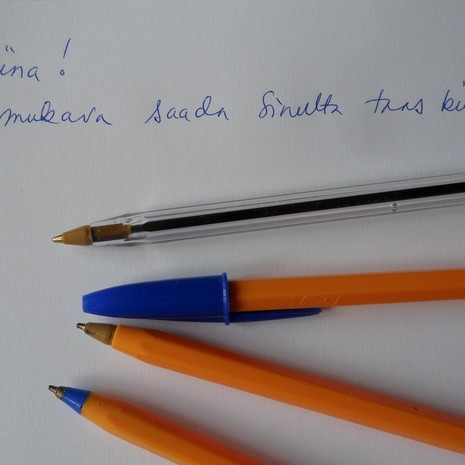 iina!
mukava saada Sinulta taas ki